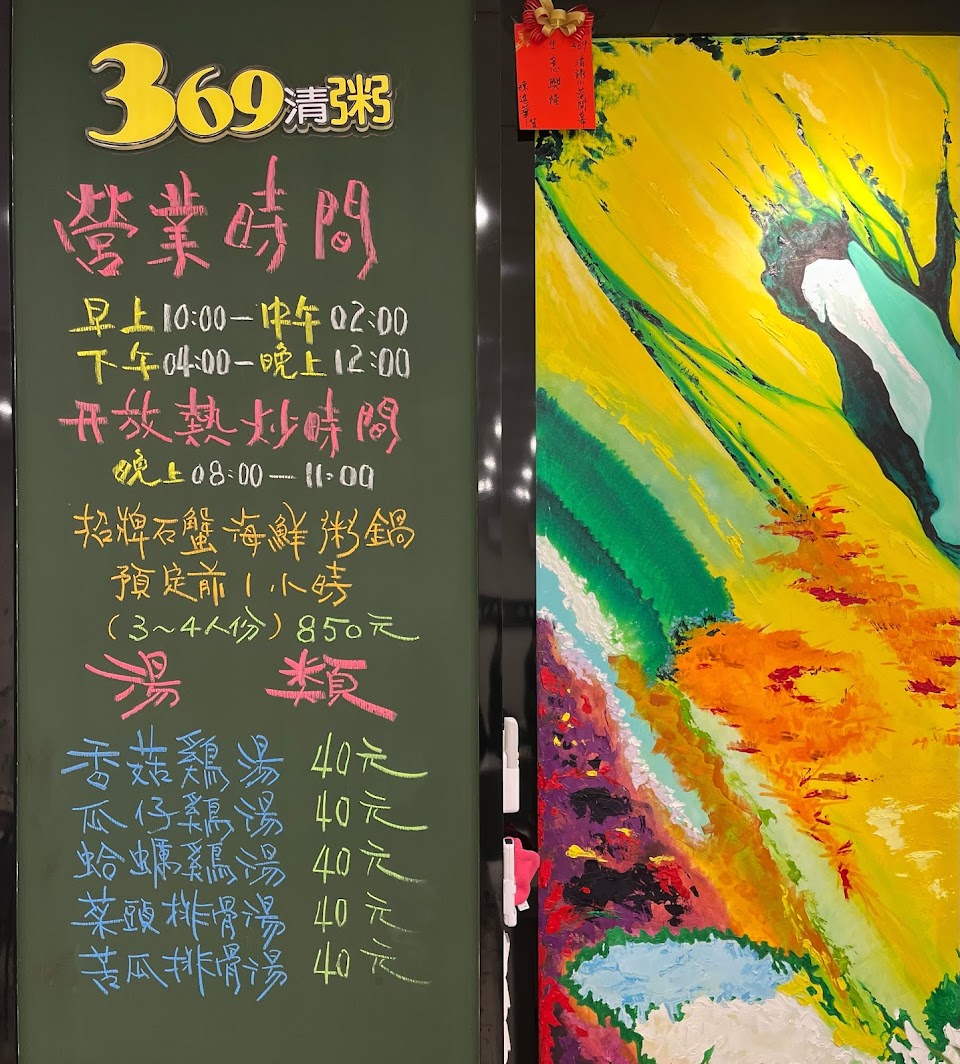 369清粥
營業時間
早上10:00—中午02:00
下午04:00—晚上12:00
开放熱炒時間
晚上08:00—11:00
招牌石蟹海鮮粥鍋
預定前1小時
(3~4人份)850元
湯類
香菇鷄湯 40元
瓜仔鷄湯 40元
蛤蠣鷄湯 40元
菜頭排骨湯 40元
苦瓜排骨湯 40元
生意興隆